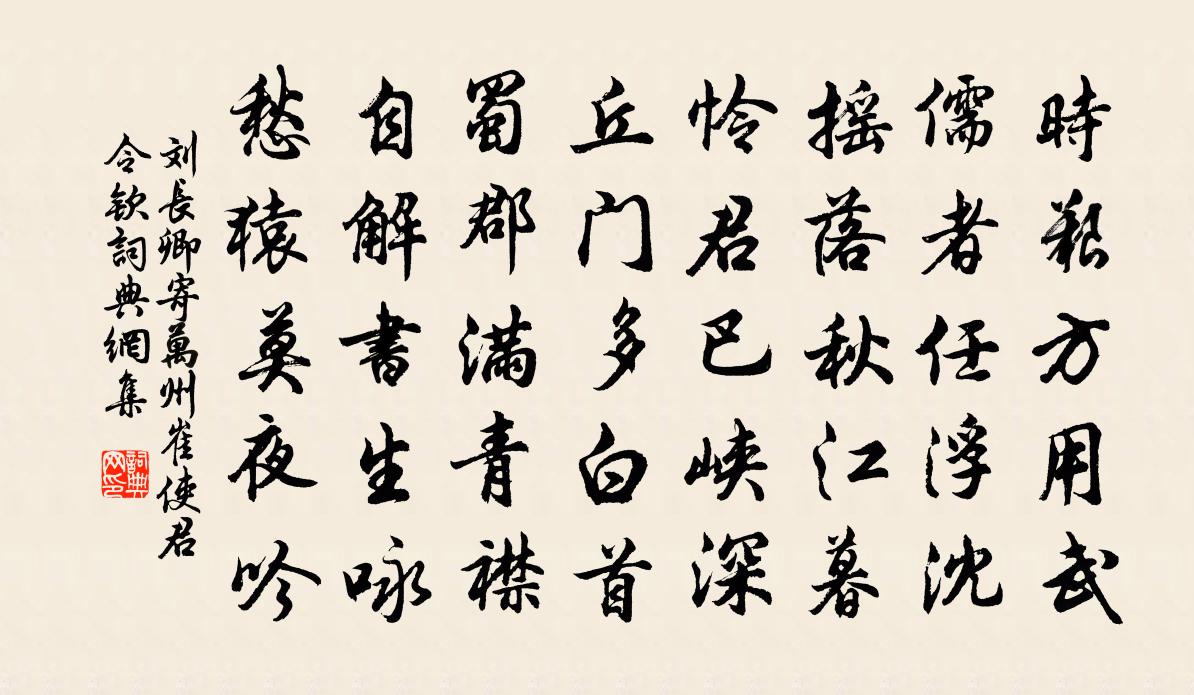 時艱方用武
儒者任浮沈
摇落秋江暮
怜君巴峡深
丘门多白首
蜀郡满青襟
自解書生咏
愁猿莫夜吟
刘長卿寄萬州崔使君
令欽詞典網集
詞典网印